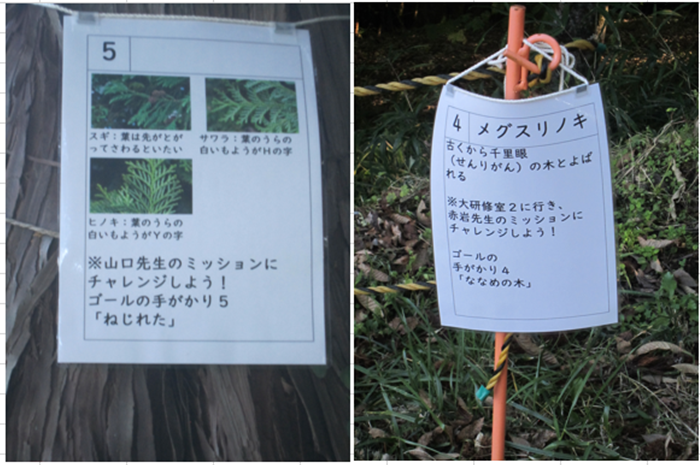 5
スギ：葉は先がとが
ってさわるといたい
サワラ：葉のうらの
白いもようがHの字
ヒノキ：葉のうらの
白いもようがYの字
※山口先生のミッションに
チャレンジしよう！
ゴールの手がかり５
「ねじれた」
4 メグスリノキ
古くから千里眼
（せんりがん）の木とよば
れる
※大研修室２に行き、
赤岩先生のミッションに
チャレンジしよう！
ゴールの
手がかり４
「ななめの木」